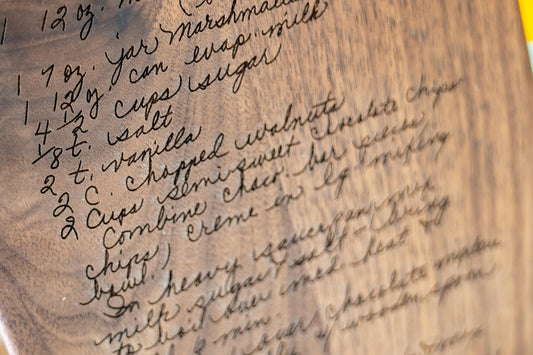 1 12 oz.
1 7 oz. jar marshmallow
1 12 oz. can evap. milk
4 1/2 cups sugar
1/8 t. salt
2 t. vanilla
2 C. chopped walnuts
2 cups semi-sweet chocolate chips
Combine choco. bar pieces
chips, creme in lg. mixing
bowl.
In heavy saucepan, mix
milk, sugar, salt - bring
to boil over med heat
6 min.
over chocolate mixture
wooden spoon